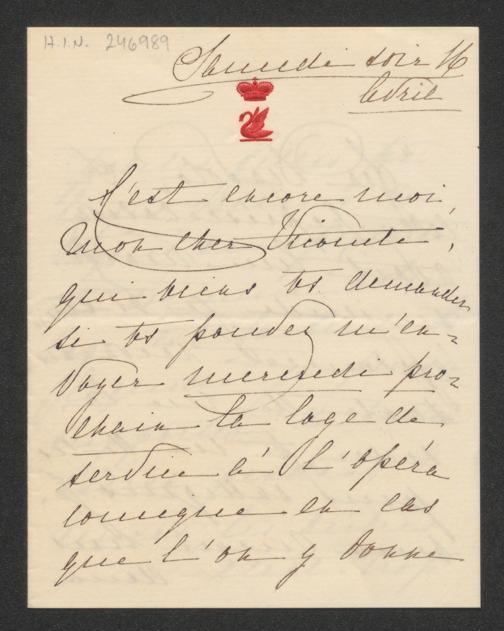 H.I.N. 246989
Samedi soir 16
Avril
C'est encore moi,
mon cher Vicomte,
qui viens vs demander
si vs pouvez m'en-
voyer mercredi pro-
chain la loge de
service à l'opéra
comique en cas
que l'on y donne